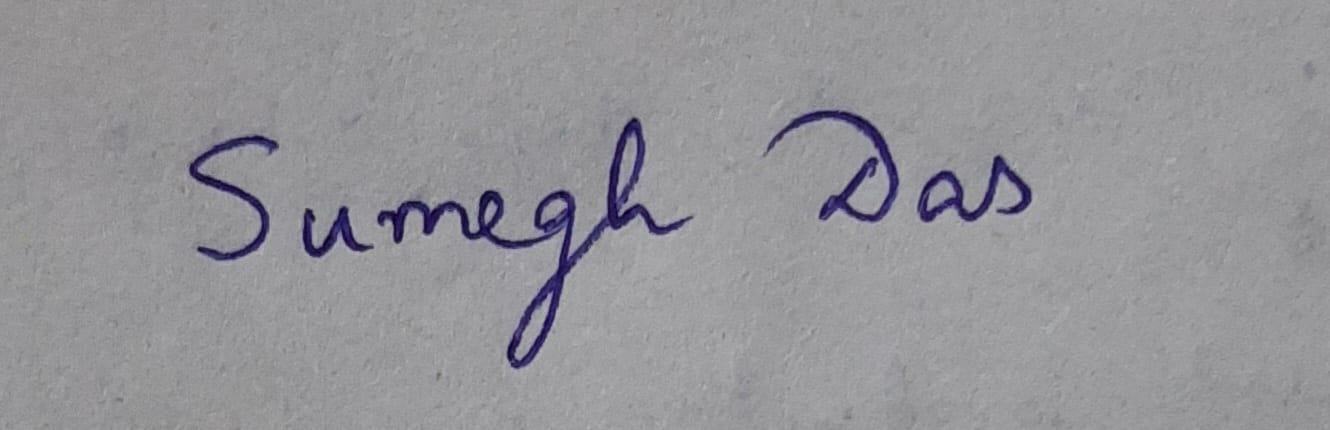 Sumegh Das